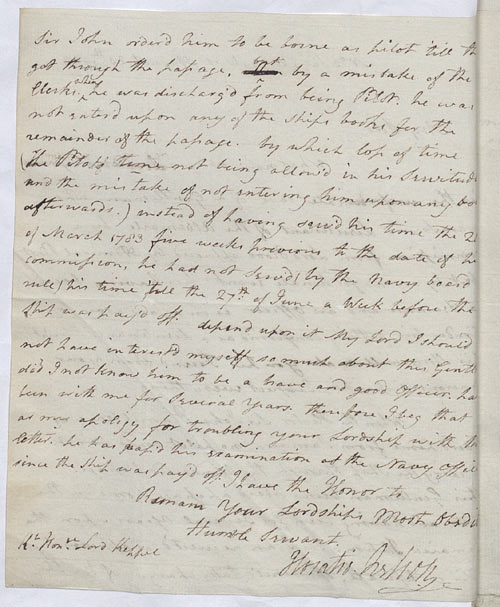 Sir John order'd him to be borne as pilot till the
got through the passage, but by a mistake of the
Clerks, when he was discharg'd from being Pilot. he was
not enter'd upon any of the Ships books for the
remainder of the passage. by which loss of time
(the Pilots time not being allow'd in his Servitude
and the mistake of not entering him upon any bo
afterwards.) instead of having serv'd his time the 2
of March 1783 five weeks previous to the date of the
commission, he had not serv'd (by the Navy board
rule) his time 'till the 27th of June a Week before the
Ship was pay'd off. depend upon it My Lord I should
not have interest'd myself so much about this Gentle
did I not know him to be a brave and good officer, ha
been with me for several years. therefore I beg that
as now apology for troubling your Lordship with this
letter. he has pass'd his examination at the Navy Offic
since the Ship was pay'd off. I have the Honor to
Remain Your Lordships Most Obedi
Humble Servant
Horatio Nelson
Rt. Honble Lord Keppel